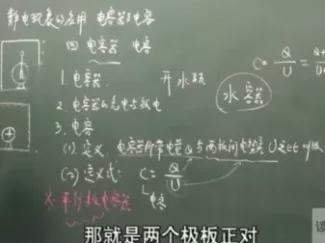 静电现象的应用 电容器与电容
四 电容器 电容
C = Q/U = Q
1. 电容器 开水瓶
水容器
2. 电容器的充电与放电
3. 电容
(1) 定义 电容器所带电量Q与两极间电势差U之比
(2) 定义式: C = Q/U
电容
※ 平行板电容器
那就是两个极板正对